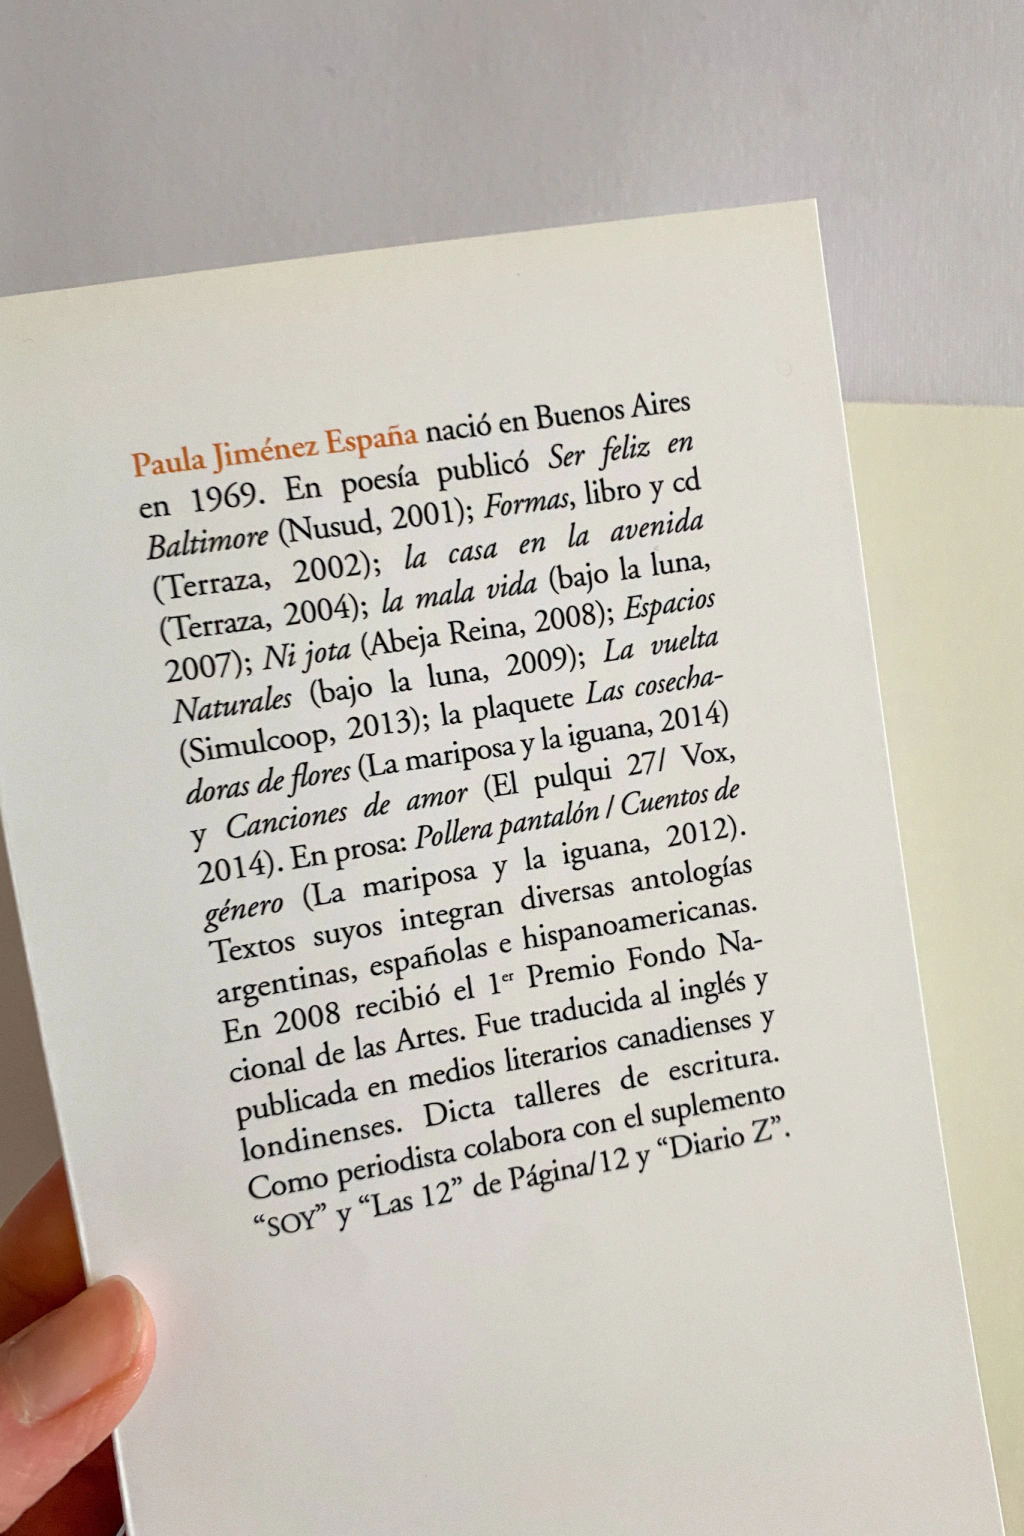 Paula Jiménez España nació en Buenos Aires
en 1969. En poesía publicó Ser feliz en
Baltimore (Nusud, 2001); Formas, libro y cd
(Terraza, 2002); la casa en la avenida
(Terraza, 2004); la mala vida (bajo la luna,
2007); Ni jota (Abeja Reina, 2008); Espacios
Naturales (bajo la luna, 2009); La vuelta
(Simulcoop, 2013); la plaquete Las cosecha-
doras de flores (La mariposa y la iguana, 2014)
y Canciones de amor (El pulqui 27/ Vox,
2014). En prosa: Pollera pantalón / Cuentos de
género (La mariposa y la iguana, 2012).
Textos suyos integran diversas antologías
argentinas, españolas e hispanoamericanas.
En 2008 recibió el 1er Premio Fondo Na-
cional de las Artes. Fue traducida al inglés y
publicada en medios literarios canadienses y
londinenses. Dicta talleres de escritura.
Como periodista colabora con el suplemento
“SOY” y “Las 12” de Página/12 y “Diario Z”.